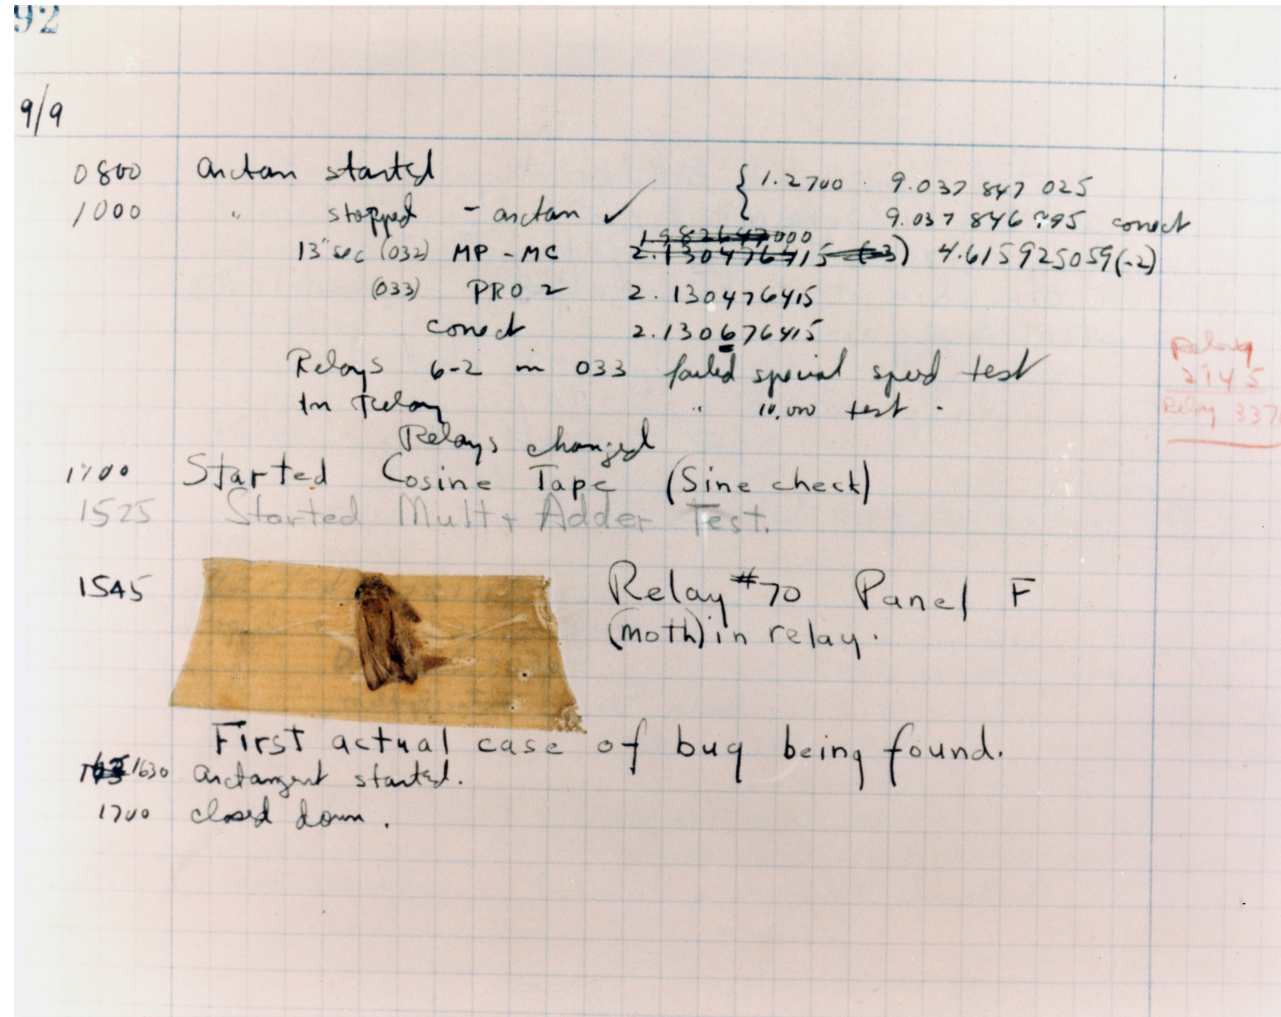 92
9/9
0800 arctan started { 1.2700 9.037 847 025
1000 " stopped - arctan ✓ 9.037 846 995 correct
13" sec (032) MP - MC 1.982647000 2.130476415 (-3) 4.615925059(-2)
(033) PRO 2 2.130476415
correct 2.130676415
Relays 6-2 in 033 failed special speed test
In Relay " 10.000 test .
Relays changed
Relay
2145
Relay 337
1700 Started Cosine Tape (Sine check)
1525 Started Mult + Adder Test.
1545 Relay #70 Panel F
(moth) in relay.
First actual case of bug being found.
1630 arctangent started.
1700 closed down.